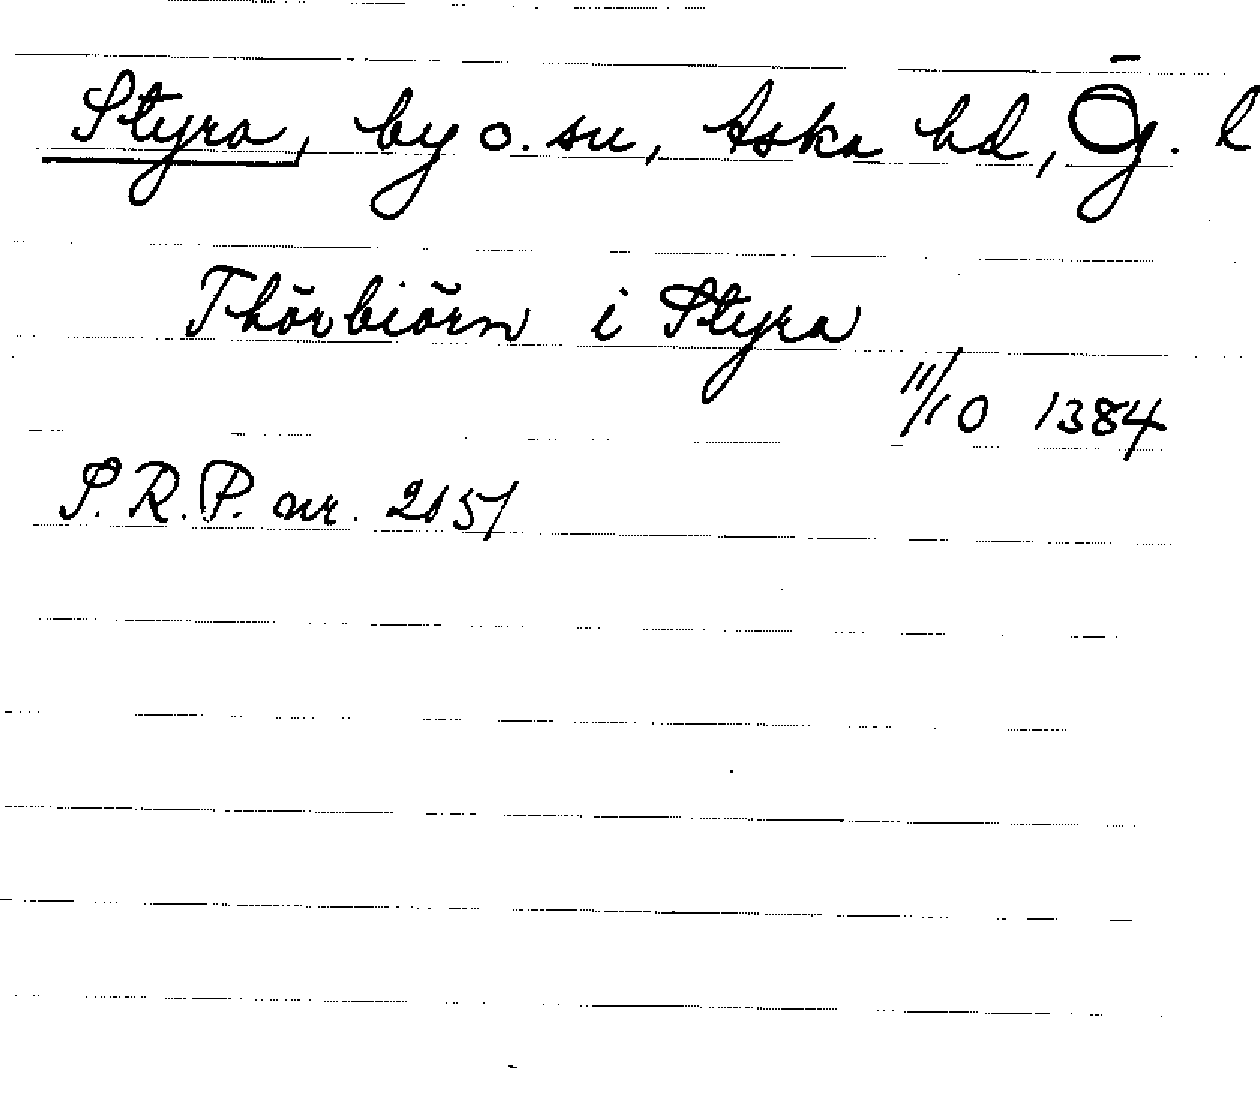 Styra, by o. sn, Aska hd, Ög. l
Thörbiörn i Styra
11/10 1384
S. R. P. nr. 2151